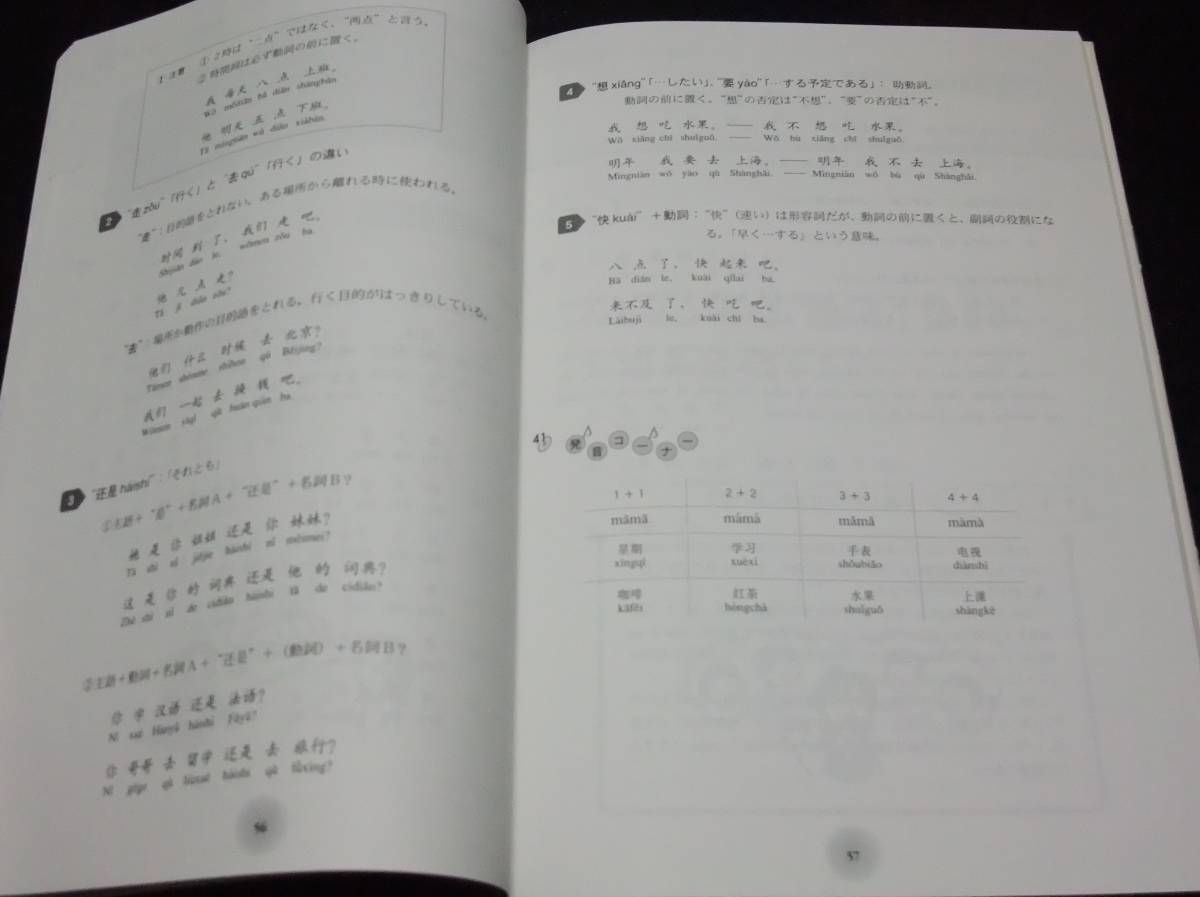 ! 注意 ① 2時は“一点”ではなく、“两点”と言う。
② 時間詞は必ず動詞の前に置く。
我 每天 八 点 上班。
Wǒ měitiān bā diǎn shàngbān.
他 明天 五 点 下班。
Tā míngtiān wǔ diǎn xiàbān.
2 “走zǒu”「行く」と“去qù”「行く」の違い
“走”：目的語をとれない。ある場所から離れる時に使われる。
时间 到 了，我们 走 吧。
Shíjiān dào le, wǒmen zǒu ba.
他 几 点 走？
Tā jǐ diǎn zǒu?
“去”：場所か動作の目的語をとれる。行く目的がはっきりしている。
他们 什么 时候 去 北京？
Tāmen shénme shíhou qù Běijīng?
我们 一起 去 换 钱 吧。
Wǒmen yìqǐ qù huàn qián ba.
3 “还是háishi”：「それとも」
①主語＋“是”＋名詞A＋“还是”＋名詞B？
她 是 你 姐姐 还是 你 妹妹？
Tā shì nǐ jiějie háishi nǐ mèimei?
这 是 你 的 词典 还是 他 的 词典？
Zhè shì nǐ de cídiǎn háishi tā de cídiǎn?
②主語＋動詞＋名詞A＋“还是”＋（動詞）＋名詞B？
你 学 汉语 还是 法语？
Nǐ xué Hànyǔ háishi Fǎyǔ?
你 哥哥 去 留学 还是 去 旅行？
Nǐ gēge qù liúxué háishi qù lǚxíng?
56
4 “想xiǎng”「…したい」、“要yào”「…する予定である」： 助動詞。
動詞の前に置く。“想”の否定は“不想”、“要”の否定は“不”。
我 想 吃 水果。 —— 我 不 想 吃 水果。
Wǒ xiǎng chī shuǐguǒ. —— Wǒ bù xiǎng chī shuǐguǒ.
明年 我 要 去 上海。—— 明年 我 不 去 上海。
Míngnián wǒ yào qù Shànghǎi. —— Míngnián wǒ bú qù Shànghǎi.
5 “快kuài”＋動詞：“快”（速い）は形容詞だが、動詞の前に置くと、副詞の役割にな
る。「早く…する」という意味。
八 点 了，快 起来 吧。
Bā diǎn le, kuài qǐlai ba.
来不及 了，快 吃 吧。
Láibují le, kuài chī ba.
41 発音コーナー
1＋1 2＋2 3＋3 4＋4
māmā mámá mǎmǎ màmà
星期 学习 手表 电视
xīngqī xuéxí shǒubiǎo diànshì
咖啡 红茶 水果 上课
kāfēi hóngchá shuǐguǒ shàngkè
57